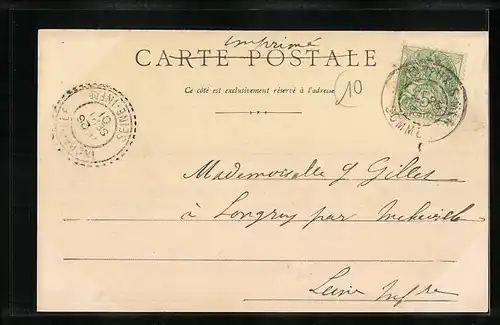 imprimé
CARTE POSTALE
Ce côté est exclusivement réservé à l'adresse
10
SOMME
SEINE-INFRE
Mademoiselle J Gilles
à Longroy par
Seine Infre